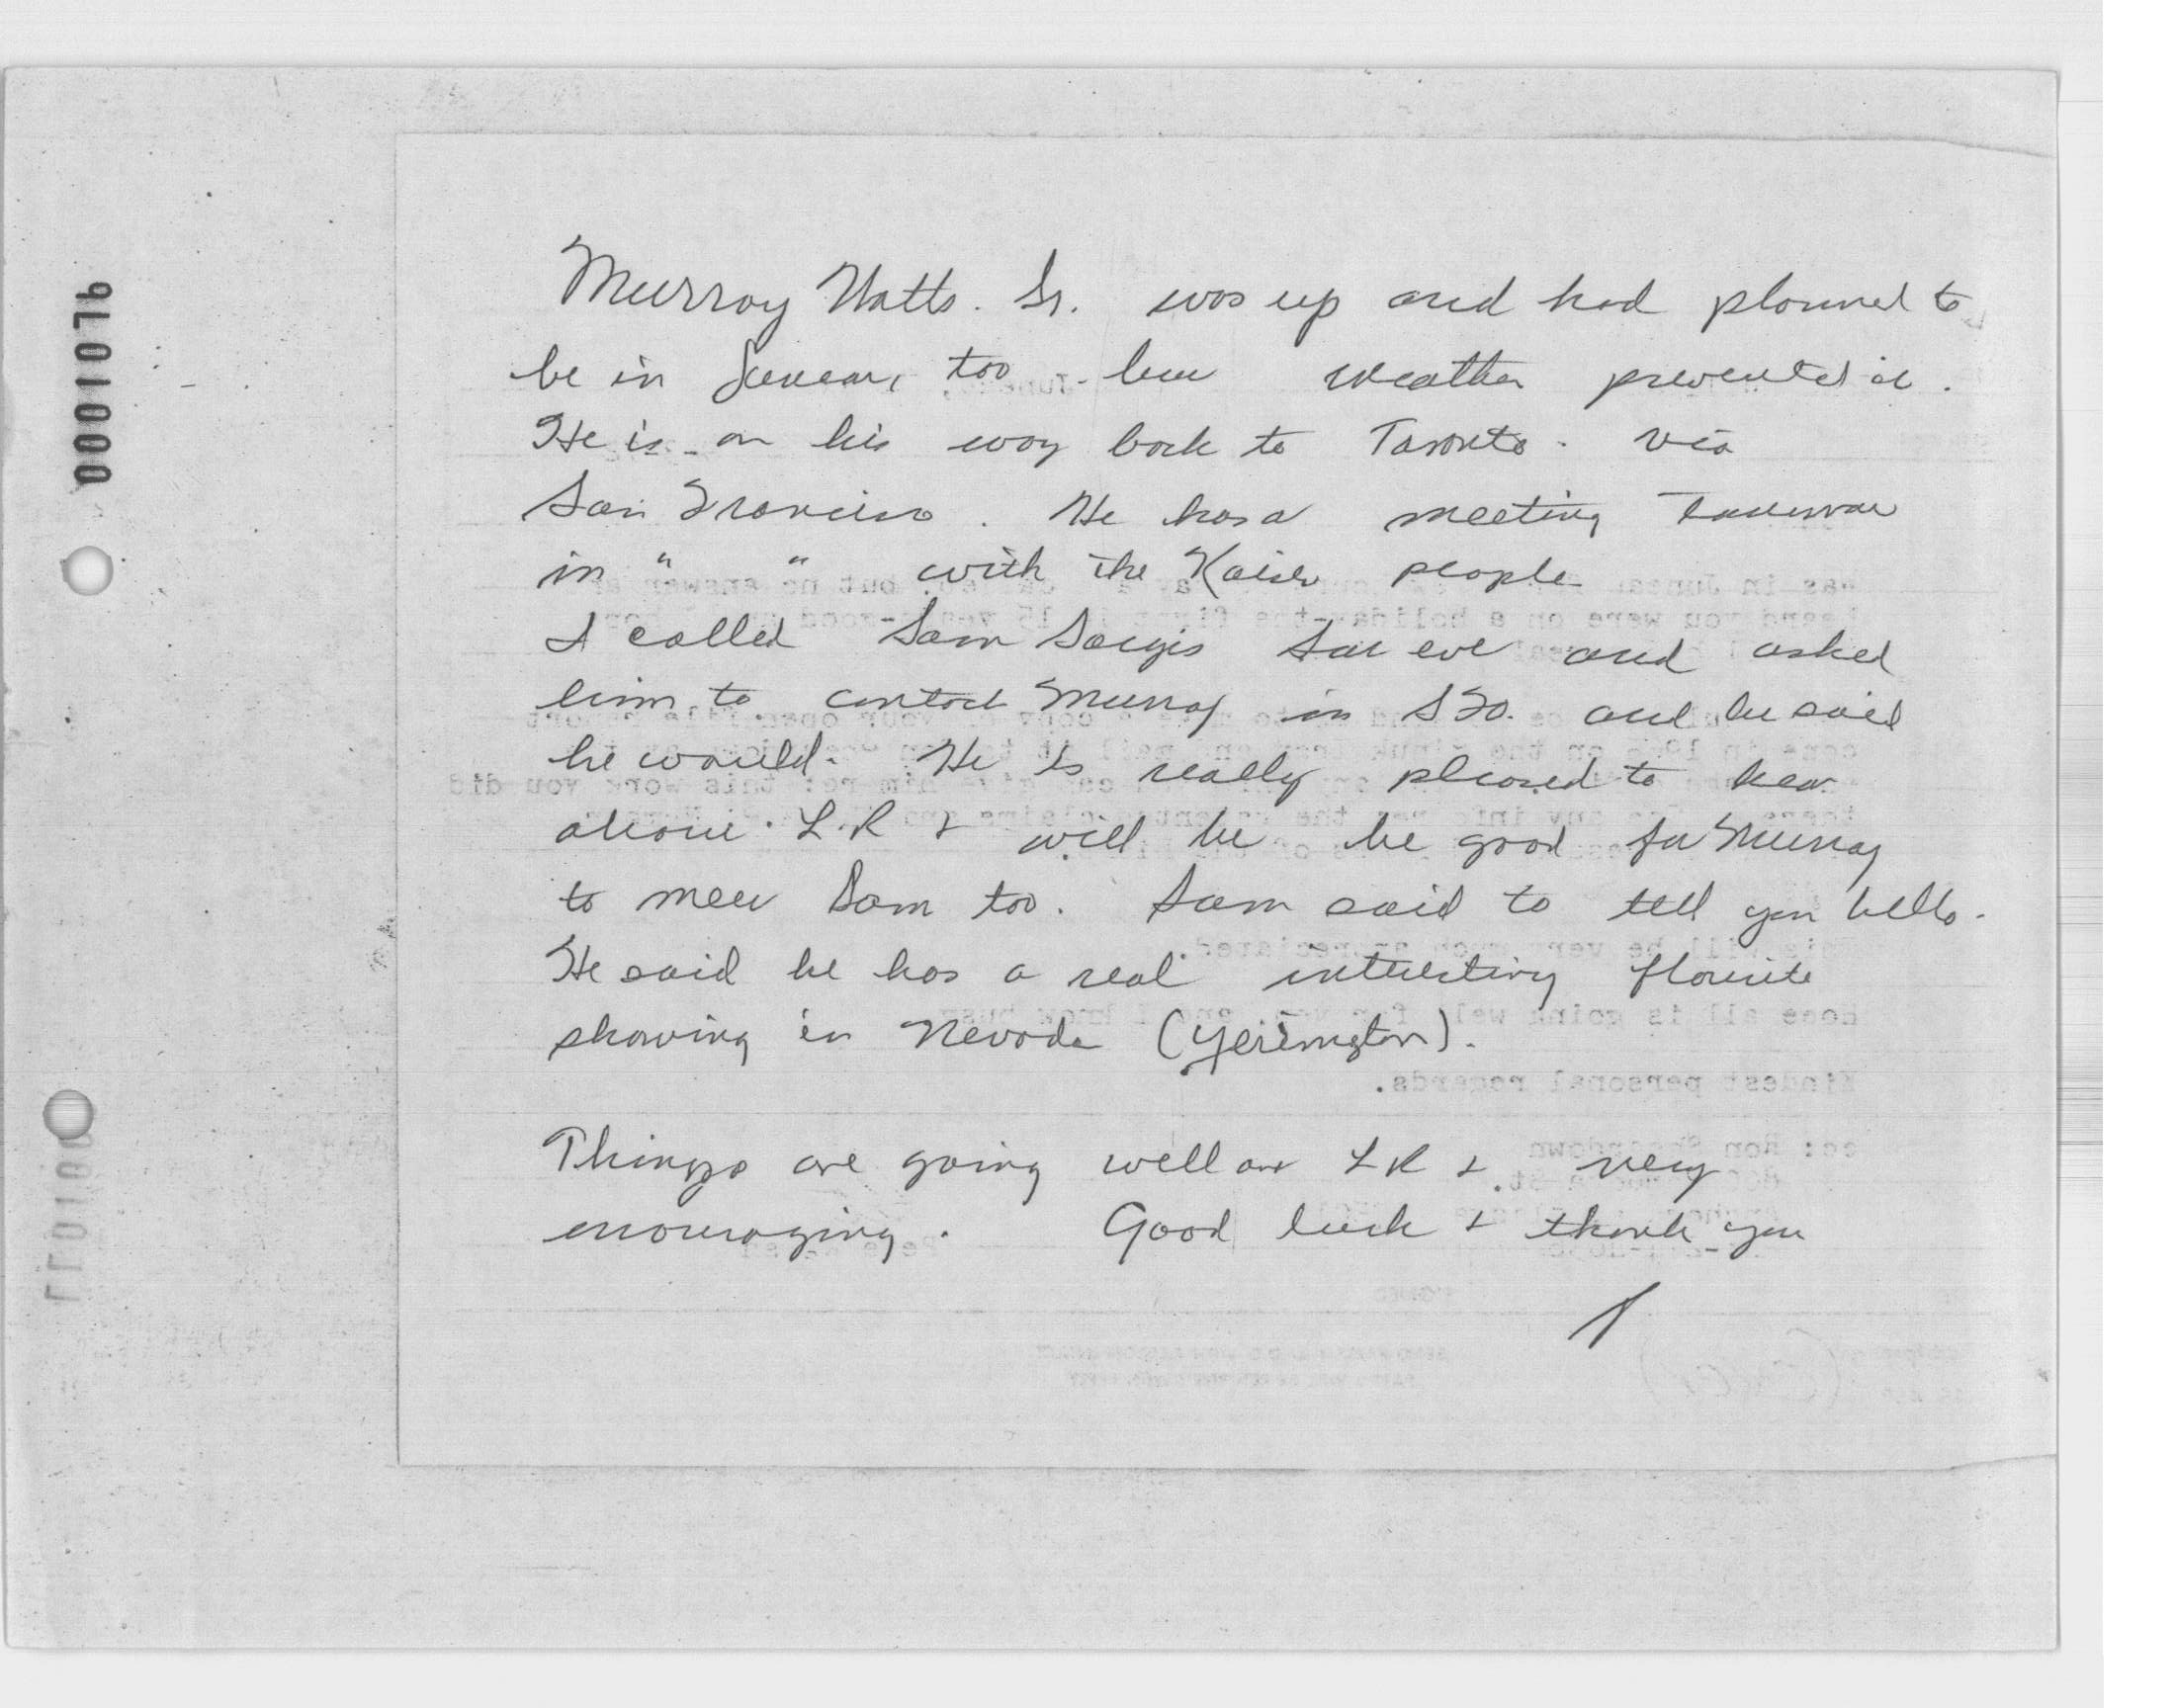 0001076
Murray Watts. Sr. was up and had planned to
be in Juneau, too - but weather prevented it.
He is on his way back to Toronto - via
San Francisco. He has a meeting tomorrow
in " " with the Kaiser people
I called Sam Sat eve and asked
him to contact Murray in SFO. and he said
he would. He is really pleased to hear
about L.R & will be be good for Murray
to meet Sam too. Sam said to tell you hello.
He said he has a real interesting flourite
showing in Nevada (Yerington).
Things are going well on LR & very
encouraging. Good luck & thank you